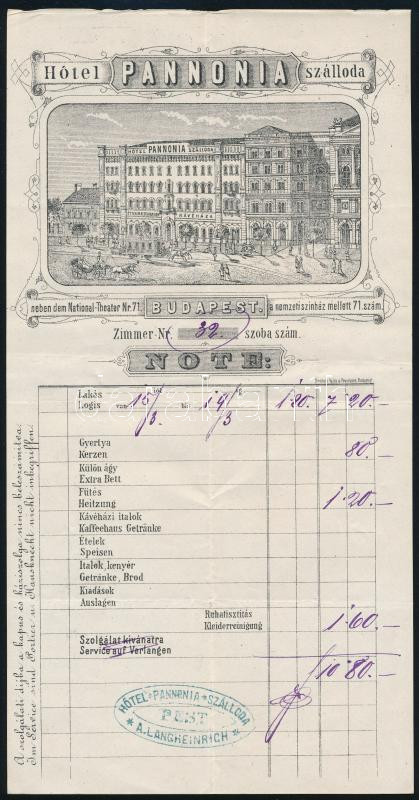 Hôtel PANNONIA szálloda
HÔTEL PANNONIA SZÁLLODA
KÁVÉHÁZA
neben dem National-Theater Nr. 71. BUDAPEST. a nemzeti szinház mellett 71. szám.
Zimmer-Nr. 32. szoba szám.
NOTE:
Lakás
Logis von 15/3. bis 19/3 1·20.- 7·20.-
Gyertya
Kerzen 80.-
Külön ágy
Extra Bett
Fütés
Heitzung 1·20.-
Kávéházi italok
Kaffeehaus Getränke
Ételek
Speisen
Italok, kenyér
Getränke, Brod
Kiadások
Auslagen
Ruhatisztitás
Kleiderreinigung 1·60.-
Szolgálat kívánatra
Service auf Verlangen
10·80.-
HÔTEL PANNONIA SZÁLLODA
PEST
A. LANGHEINRICH
A szolgálati díjba a kapus és háziszolga nincs beleszámítva.
Im Service sind Portier u. Hausknecht nicht inbegriffen.